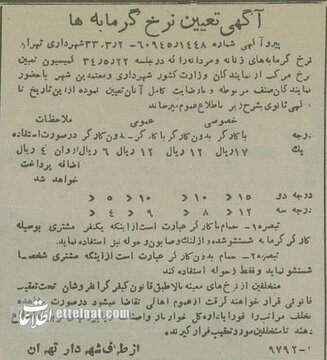 آگهی تعیین نرخ گرمابه ها
پیرو آگهی شماره ۶۰۹۴۵/۱۴۴۸ - ۳۳٫۳٫۲ شهرداری تهران
نرخ گرمابه‌های زنانه و مردانه را که در جلسه ۳۴٫۵٫۲۲ کمیسیون تعیین
نرخ مرکب از نمایندگان وزارت کشور شهرداری و معتمدین شهر با حضور
نمایندگان صنف مربوطه و با رضایت کامل آنان تعیین نموده از این تاریخ تا
آگهی ثانوی بشرح زیر باطلاع عموم میرساند
خصوصی عمومی ملاحظات
درجه با کارگر بدون کارگر با کارگر - بدون کارگر در صورت استفاده
یک ۱۷ ریال ۱۲ ریال ۱۲ ریال ۶ ریال از وان ۴ ریال
اضافه پرداخت
خواهد شد
درجه دو ۱۵ « ۱۰ « ۱۰ « ۵ «
درجه سه ۱۲ « ۸ « ۹ « ۴ «
تبصره ۱- حمام با کارگر عبارت است از اینکه یکنفر مشتری بوسیله
کارگر گرمابه شستشو شده و از لنگ و صابون و حوله نیز استفاده نماید.
تبصره ۲- بدون کارگر عبارت است از اینکه مشتری شخصا
شستشو نماید و فقط از حوله استفاده کند
متخلفین از نرخهای معینه بالا طبق قانون کیفر گرانفروشان تحت تعقیب
قانونی قرار خواهند گرفت از عموم اهالی تقاضا میشود در صورت مشاهده
تخلف مراتب را فورا باداره کل خواربار واصناف
دهند تا متخلفین مورد تعقیب قرار گیرند.
۹۷۹۲-آ از طرف شهردار تهران
اطلاعات ettelaat.com